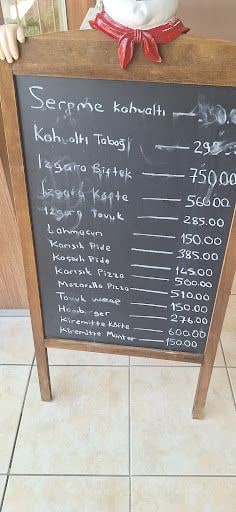 Serpme Kahvaltı
Kahvaltı Tabağı
Izgara Biftek — 750.00
Izgara Köfte — 560.00
Izgara Tavuk — 285.00
Lahmacun — 150.00
Karisik Pide — 385.00
Kasarlı Pide
Karisik Pizza — 500.00
Mozarella Pizza — 510.00
Tavuk wrap — 150.00
Hamburger — 276.00
Kiremitte Köfte — 600.00
Kiremitte Mantar — 150.00